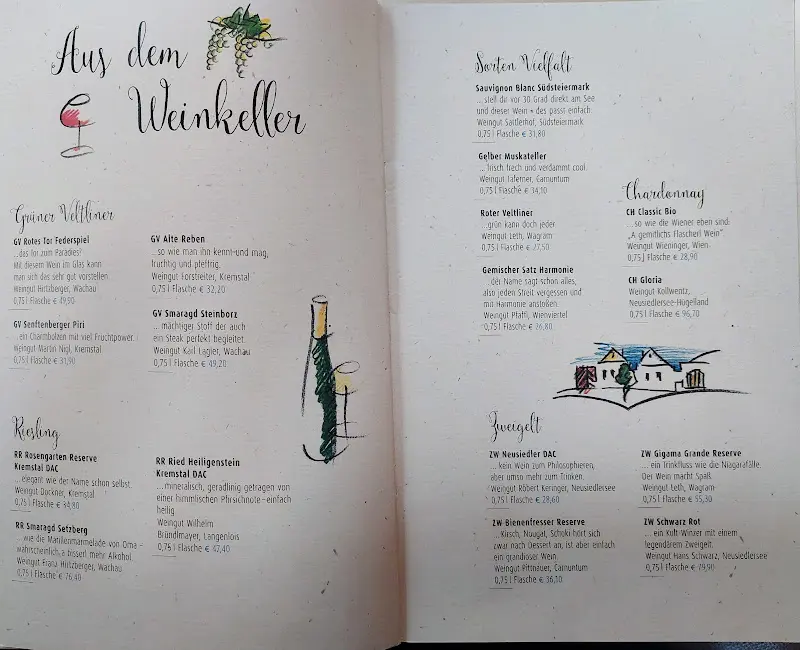 Aus dem
Weinkeller
Grüner Veltliner
GV Rotes Tor Federspiel
...das Tor zum Paradies?
Mit diesem Wein im Glas kann
man sich das sehr gut vorstellen.
Weingut Hirtzberger, Wachau
0,75 l Flasche € 49,90
GV Senftenberger Piri
...ein Charmbolzen mit viel Fruchtpower.
Weingut Martin Nigl, Kremstal
0,75 l Flasche € 31,90
GV Alte Reben
...so wie man ihn kennt und mag,
fruchtig und pfeffrig.
Weingut Forstreiter, Kremstal
0,75 l Flasche € 32,20
GV Smaragd Steinborz
...mächtiger Stoff der auch
ein Steak perfekt begleitet.
Weingut Karl Lagler, Wachau
0,75 l Flasche € 49,20
Riesling
RR Rosengarten Reserve
Kremstal DAC
...elegant wie der Name schon selbst.
Weingut Dockner, Kremstal
0,75 l Flasche € 34,80
RR Smaragd Setzberg
...wie die Marillenmarmelade von Oma -
wahrscheinlich a bisserl mehr Alkohol.
Weingut Franz Hirtzberger, Wachau
0,75 l Flasche € 76,40
RR Ried Heiligenstein
Kremstal DAC
...mineralisch, geradlinig getragen von
einer himmlischen Pfirsichnote - einfach
heilig.
Weingut Wilhelm
Bründlmayer, Langenlois
0,75 l Flasche € 47,40
Sorten Vielfalt
Sauvignon Blanc Südsteiermark
...stell dir vor 30 Grad direkt am See
und dieser Wein - des passt einfach.
Weingut Sattlerhof, Südsteiermark
0,75 l Flasche € 31,80
Gelber Muskateller
...frisch frech und verdammt cool.
Weingut Taferner, Carnuntum
0,75 l Flasche € 34,10
Roter Veltliner
...grün kann doch jeder
Weingut Leth, Wagram
0,75 l Flasche € 27,50
Gemischter Satz Harmonie
...der Name sagt schon alles,
also jeden Streit vergessen und
mit Harmonie anstoßen.
Weingut Pfaffl, Weinviertel
0,75 l Flasche € 26,80
Chardonnay
CH Classic Bio
...so wie die Wiener eben sind:
„A gemitlichs Flascherl Wein".
Weingut Wieninger, Wien
0,75 l Flasche € 28,90
CH Gloria
Weingut Kollwentz,
Neusiedlersee-Hügelland
0,75 l Flasche € 96,70
Zweigelt
ZW Neusiedler DAC
...kein Wein zum Philosophieren,
aber umso mehr zum Trinken.
Weingut Robert Keringer, Neusiedlersee
0,75 l Flasche € 28,60
ZW Bienenfresser Reserve
...Kirsch, Nougat, Schoki hört sich
zwar nach Dessert an, ist aber einfach
ein grandioser Wein.
Weingut Pittnauer, Carnuntum
0,75 l Flasche € 36,10
ZW Gigama Grande Reserve
...ein Trinkfluss wie die Niagarafälle.
Der Wein macht Spaß.
Weingut Leth, Wagram
0,75 l Flasche € 55,30
ZW Schwarz Rot
...ein Kult-Winzer mit einem
legendärem Zweigelt.
Weingut Hans Schwarz, Neusiedlersee
0,75 l Flasche € 79,90